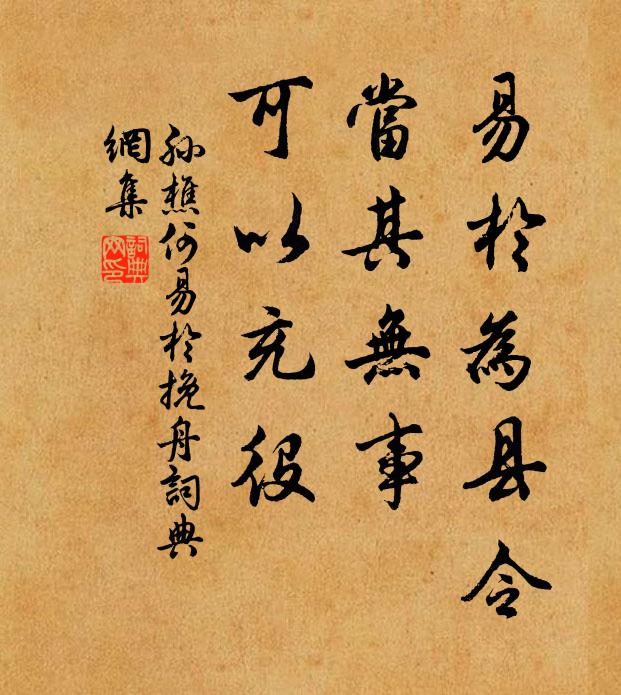 易於為县令
當其無事
可以充役
孙樵何易於挽舟詞典
網集
詞典
网印